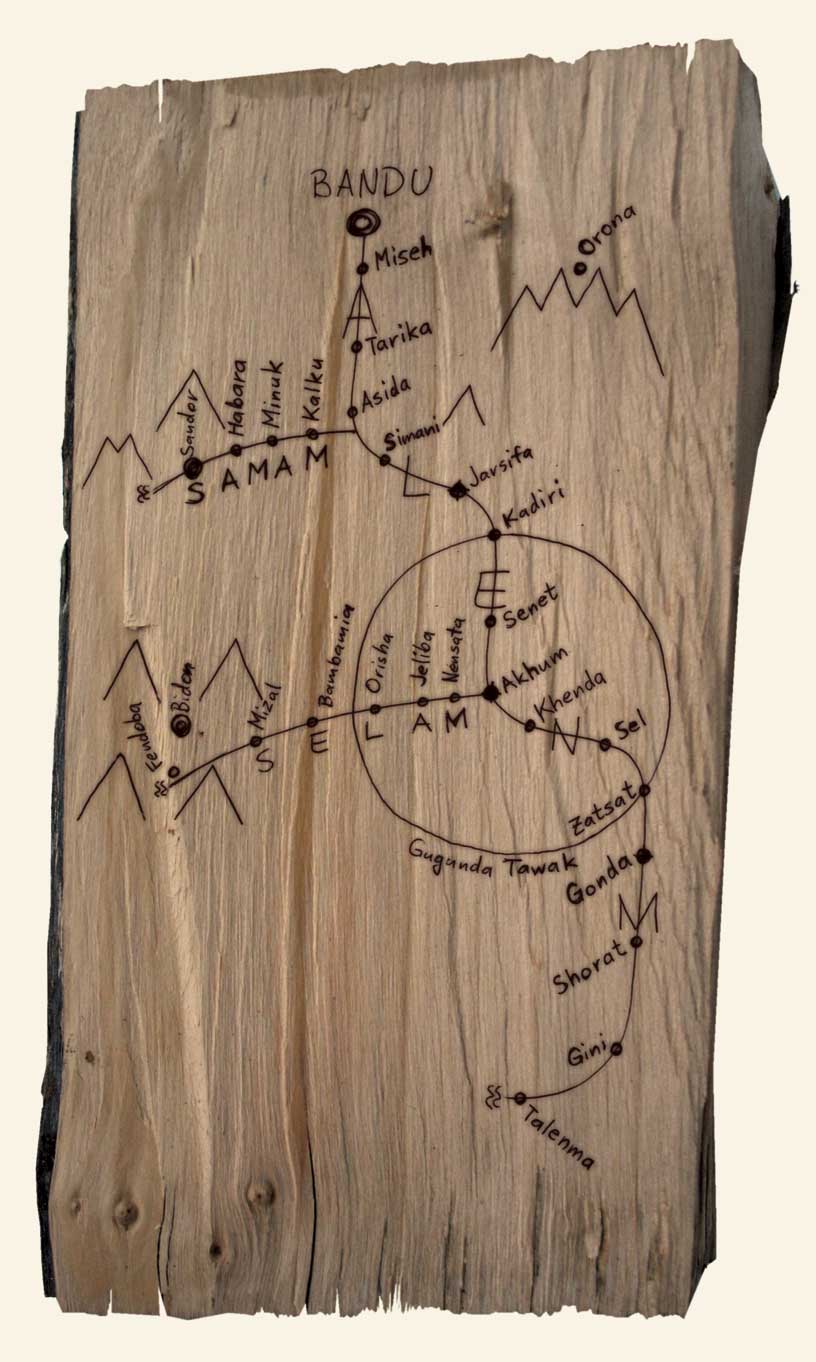 BANDU
Miseh
Orona
A
Tarika
Asida
Sandor
Habara
Minuk
Kalku
Simani
SAMAM
L
Jarsifa
Kadiri
E
Senet
Akhum
Khenda
Sel
N
Fendoba
Bidon
Mizal
Bambamia
Orisha
Jeliba
Nensata
SELAM
Zatsat
Gugunda Tawak
Gonda
M
Shorat
Gini
Talenma